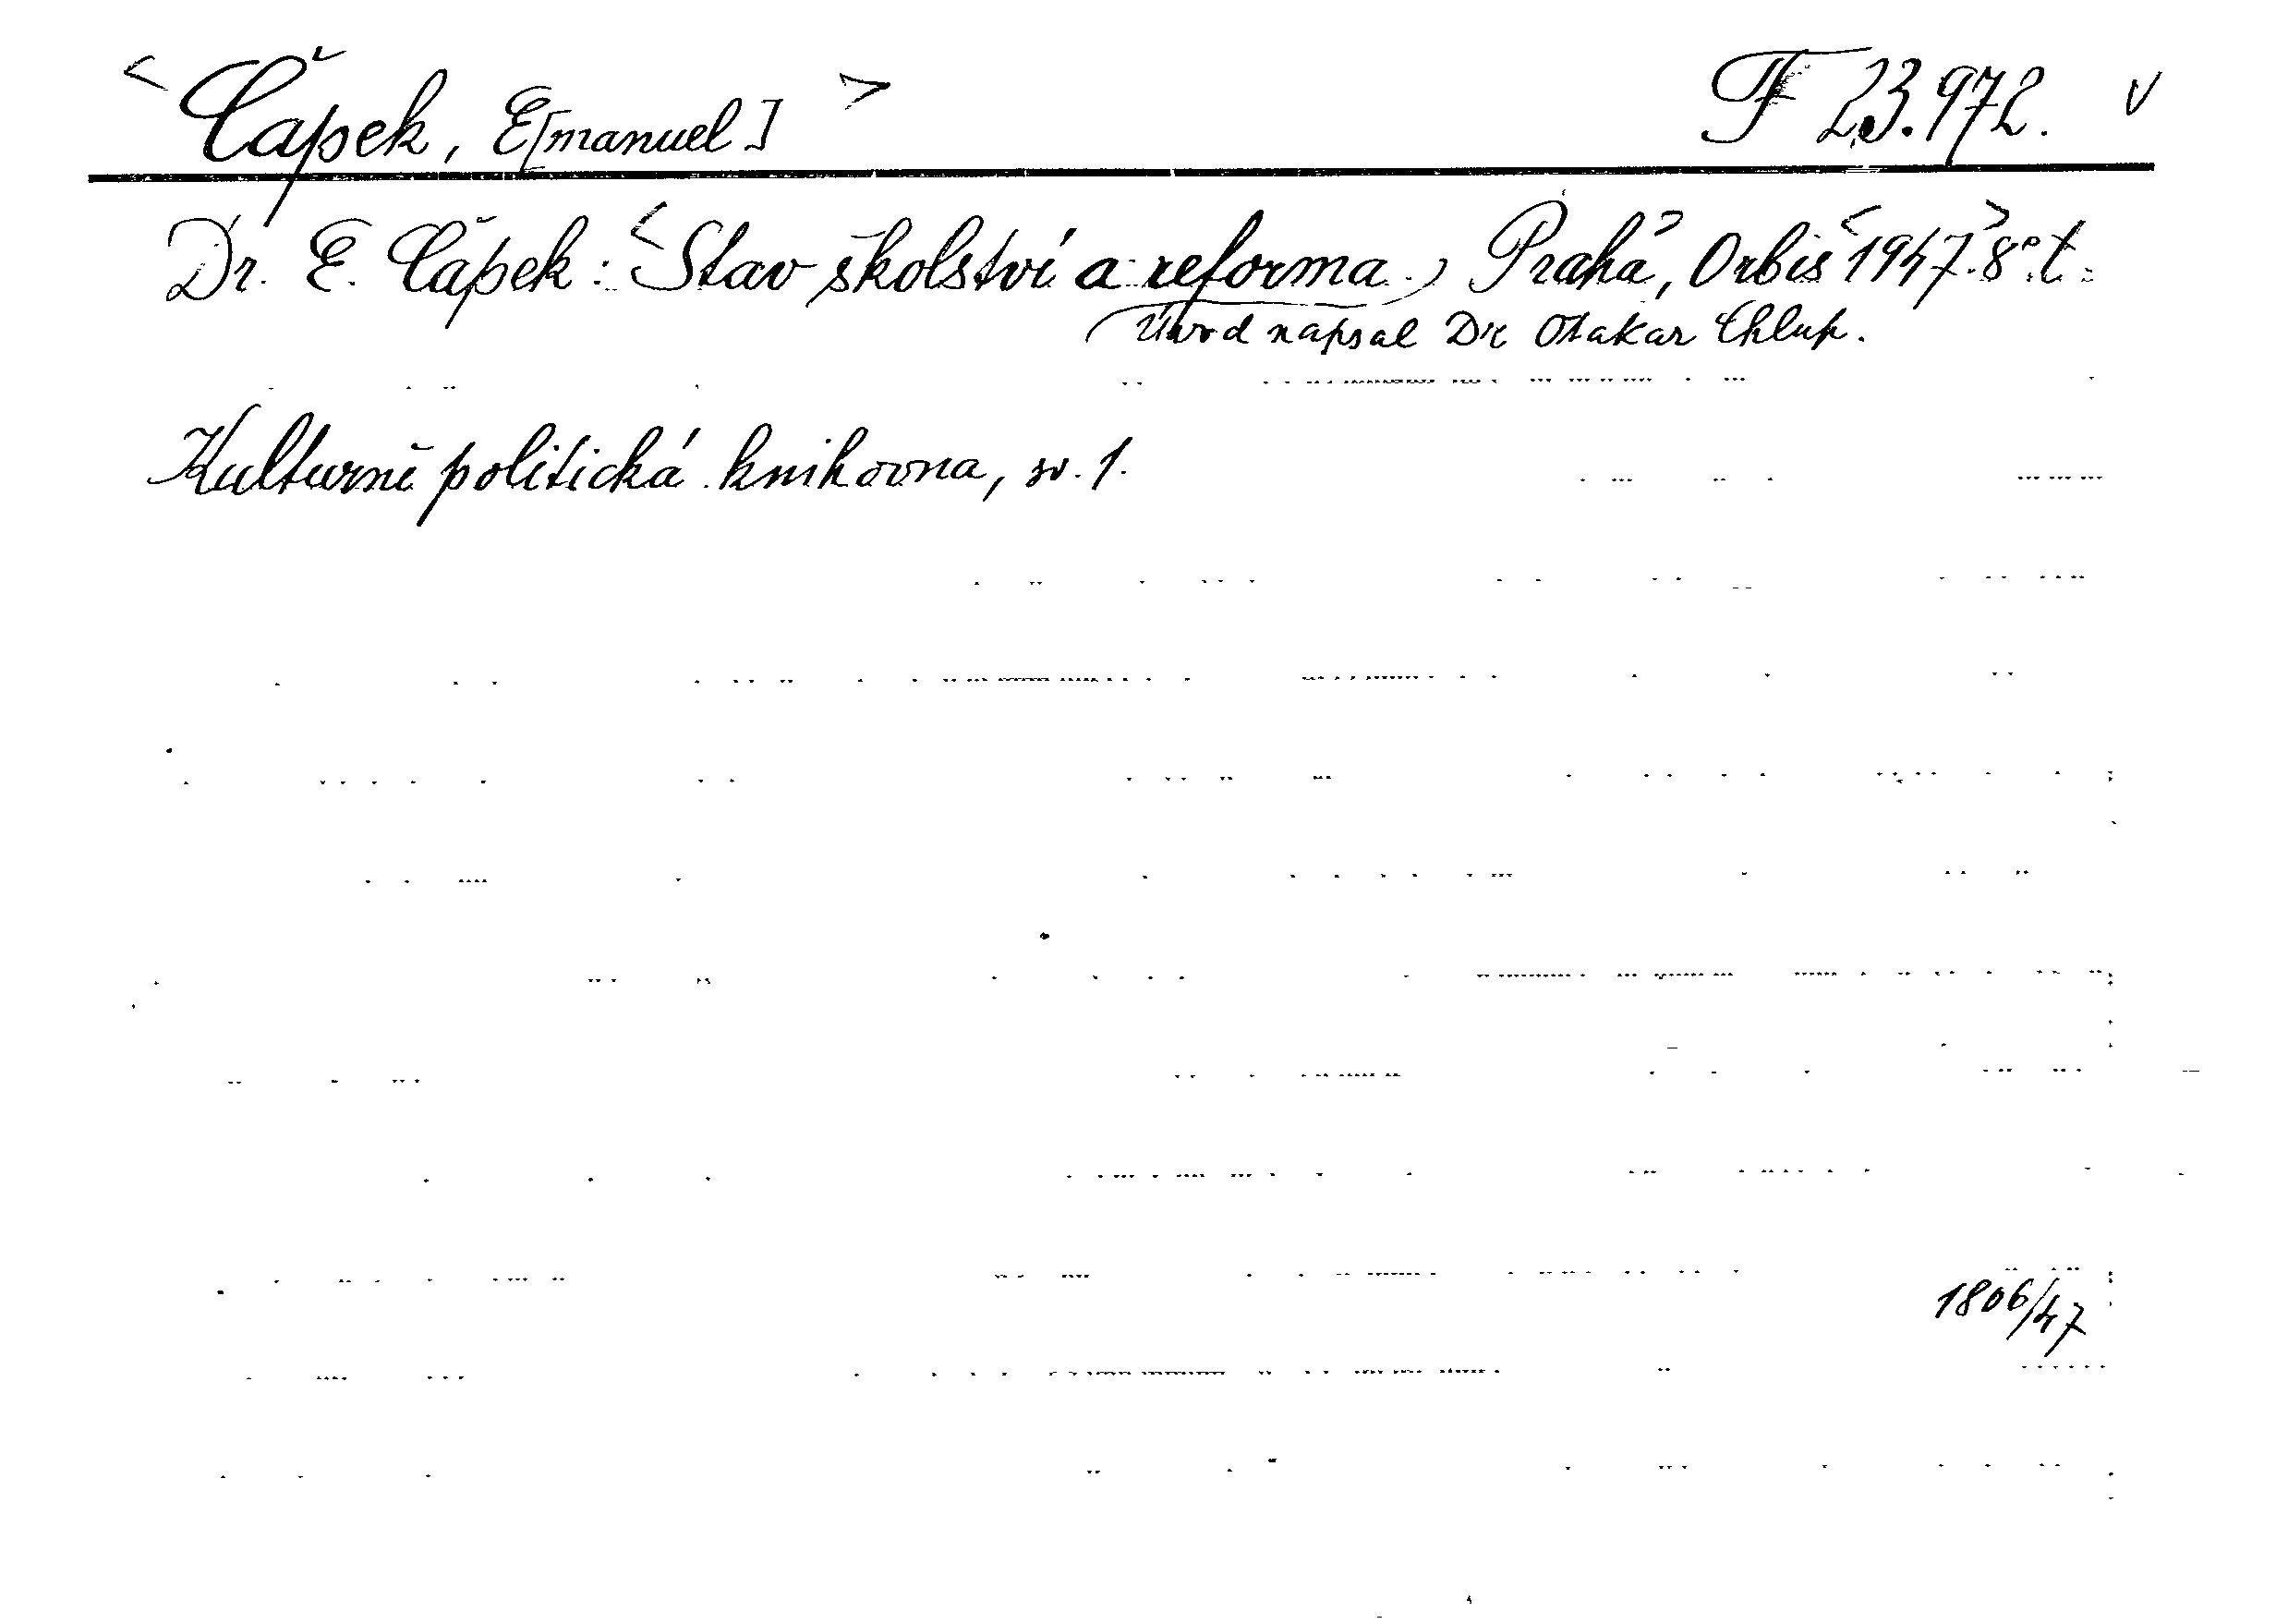 < Čapek, E[manuel] > F 23.972. v
Dr. E. Čapek: <Stav školství a reforma.> Praha, Orbis <1947.> 8° t.
Úvod napsal Dr Otakar Chlup.
Kulturně politická knihovna, sv. 1.
1806/47